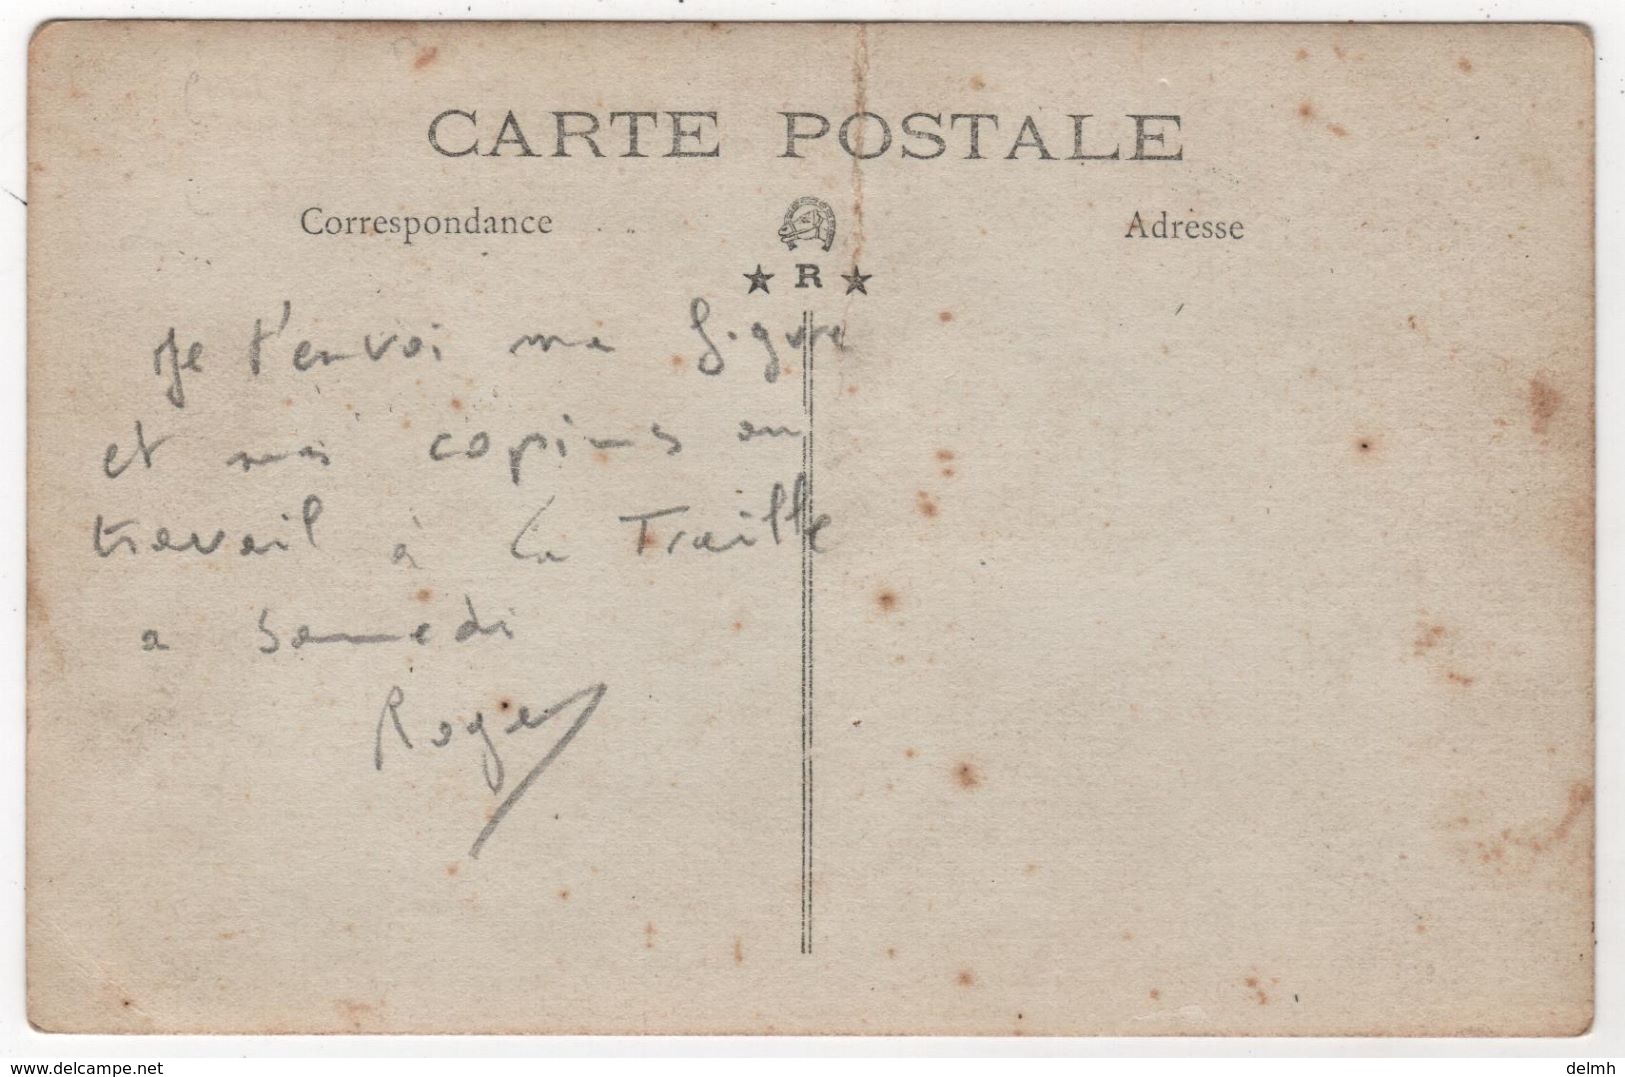 CARTE POSTALE
Correspondance
Adresse
★ R ★
Je t'envoi ma figure
et mes copins au
travail à la Traille
a Samedi
Roger
www.delcampe.net
delmh